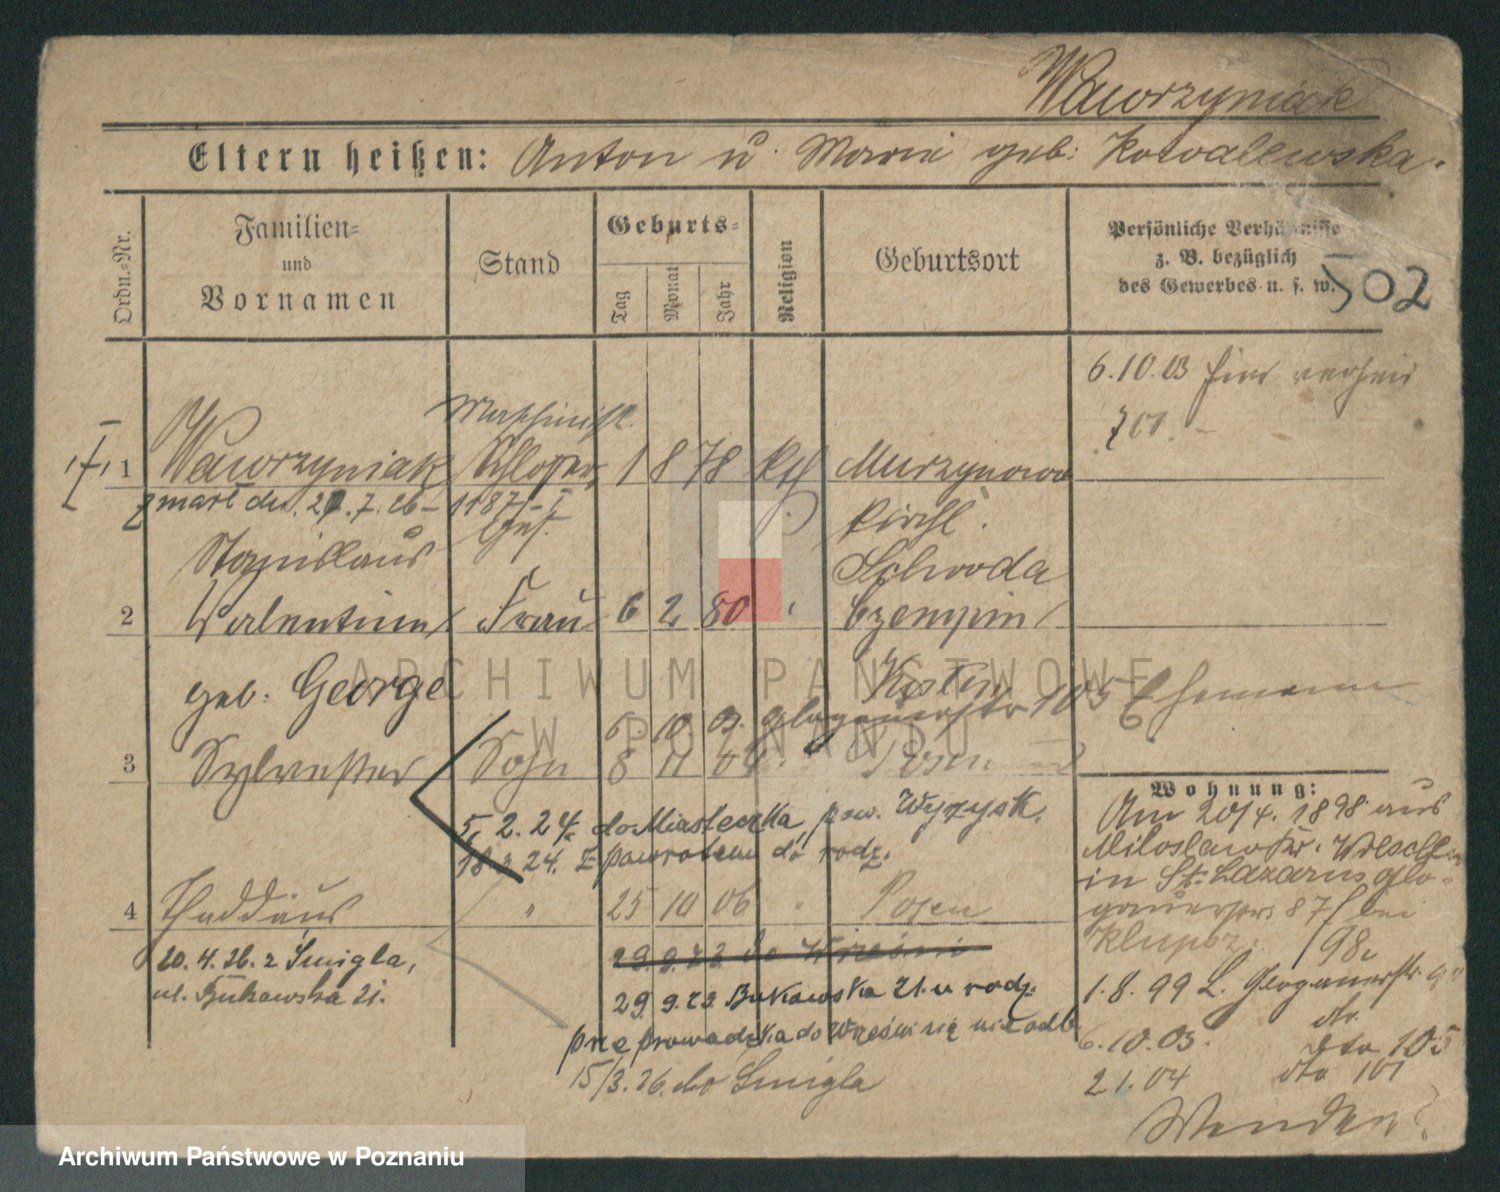 Wawrzyniak
Eltern heißen: Anton u. Marie geb: Kowalewska.
Ordn.-Nr.
Familien-
und
Vornamen
Stand
Geburts-
Tag
Monat
Jahr
Religion
Geburtsort
Persönliche Verhältnisse
z. B. bezüglich
des Gewerbes u. s. w.
502
6.10.03 hier
Maschinist
1 Wawrzyniak Schlosser 1 8 78 kth Murzynowo
zmarł dn. 27.7.26 – 1187/I
Ges.
kirchl.
Stanislaus
Schroda
2 Valentine Frau 6 2 80 Czempin
geb. George
Kosten
6 10 03. Glogauerstr 105 Ehemann
3 Sylvester Sohn 8 11 04 Posen
Wohnung:
5. 2. 24. do Miasteczka, pow. Wyrzysk.
18 3 24. Z powrotem do rodz.
4 Thaddäus " 25 10 06 " Posen
20.4.26. z Śmigla,
ul. Bukowska 21.
29.9.23 do Wrześni
29 9.23 Bukowska 21. u rodz.
przeprowadzka do Wrześni się nie odb.
15/3.26. do Śmigla
Am 20/4. 1898 aus
Miloslaw Kr. Wreschen
in St. Lazarus Glo-
gauerstr. 87 bei
98.
1.8.99 L. Glogauerstr.
dto.
6.10.03. dto 105
2 1.04 dto 101
Wenden
ARCHIWUM PAŃSTWOWE
W POZNANIU
Archiwum Państwowe w Poznaniu